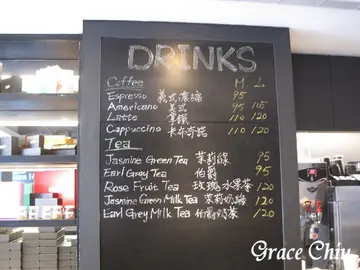 DRINKS
Coffee M L
Espresso 義式濃縮 95
Americano 美式 95 115
Latte 拿鐵 110 120
Cappuccino 卡布奇諾 110 120
Tea
Jasmine Green Tea 茉莉綠 95
Earl Grey Tea 伯爵 95
Rose Fruit Tea 玫瑰水果茶 120
Jasmine Green Milk Tea 茉莉奶綠 120
Earl Grey Milk Tea 伯爵奶茶 120
Grace Chiu